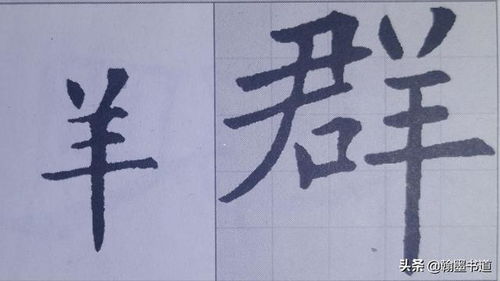 羊 群
头条 @翰墨书道